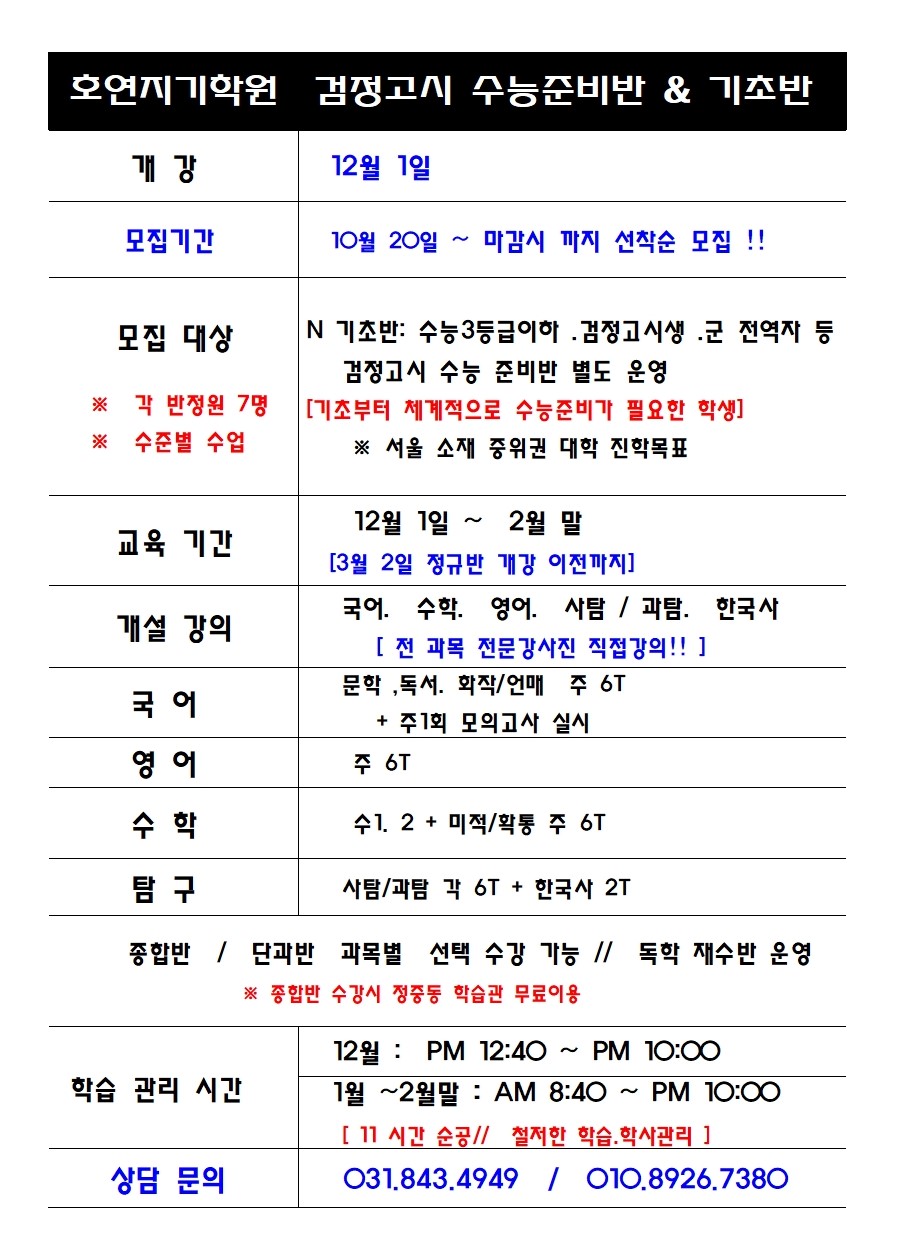 호연지기학원 검정고시 수능준비반 & 기초반
개 강 12월 1일
모집기간 10월 20일 ~ 마감시 까지 선착순 모집 !!
모집 대상
※ 각 반정원 7명
※ 수준별 수업
N 기초반: 수능3등급이하 .검정고시생 .군 전역자 등
검정고시 수능 준비반 별도 운영
[기초부터 체계적으로 수능준비가 필요한 학생]
※ 서울 소재 중위권 대학 진학목표
교육 기간
12월 1일 ~ 2월 말
[3월 2일 정규반 개강 이전까지]
개설 강의
국어. 수학. 영어. 사탐 / 과탐. 한국사
[ 전 과목 전문강사진 직접강의!! ]
국 어
문학 ,독서. 화작/언매 주 6T
+ 주1회 모의고사 실시
영 어 주 6T
수 학 수1. 2 + 미적/확통 주 6T
탐 구 사탐/과탐 각 6T + 한국사 2T
종합반 / 단과반 과목별 선택 수강 가능 // 독학 재수반 운영
※ 종합반 수강시 정중동 학습관 무료이용
학습 관리 시간
12월 : PM 12:40 ~ PM 10:00
1월 ~2월말 : AM 8:40 ~ PM 10:00
[ 11 시간 순공// 철저한 학습.학사관리 ]
상담 문의 031.843.4949 / 010.8926.7380